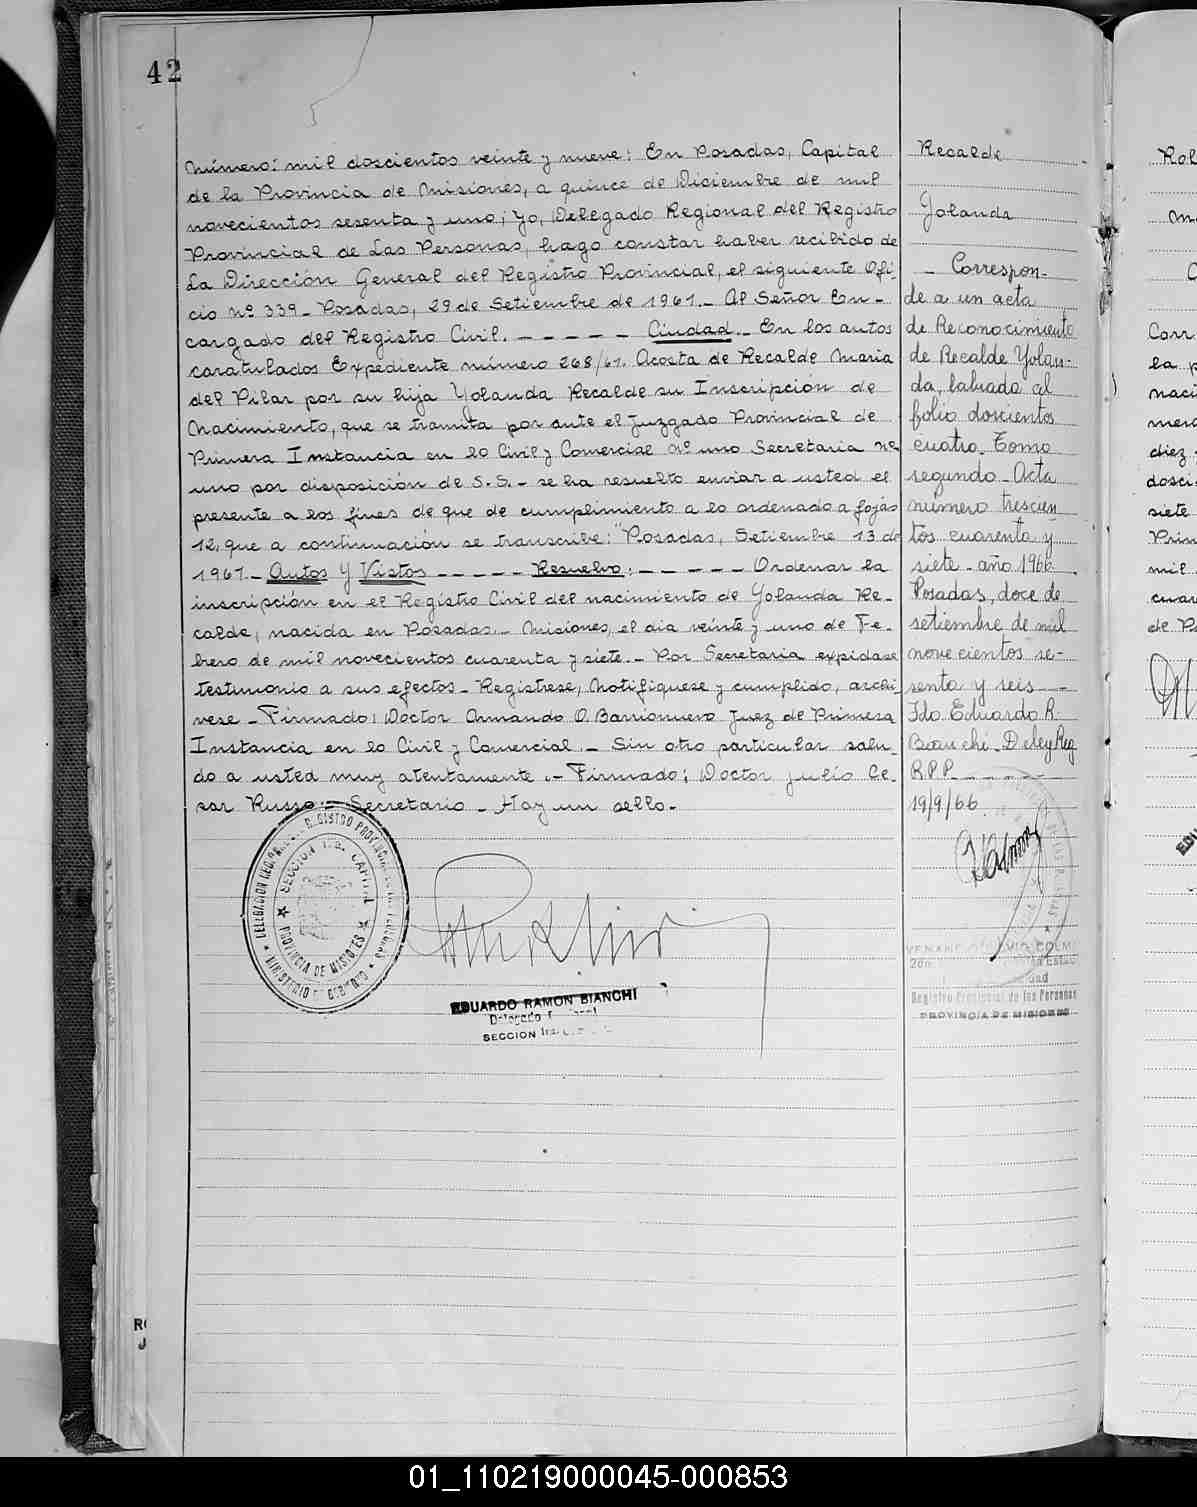 42
Número: mil doscientos veinte y nueve: En Posadas, Capital
de la Provincia de Misiones, a quince de Diciembre de mil
novecientos sesenta y uno; Yo, Delegado Regional del Registro
Provincial de Las Personas, hago constar haber recibido de
La Dirección General del Registro Provincial, el siguiente Ofi-
cio nº 339 - Posadas, 29 de Setiembre de 1961.- Al Señor En-
cargado del Registro Civil. - - - - - Ciudad.- En los autos
caratulados Expediente número 268/61. Acosta de Recalde Maria
del Pilar por su hija Yolanda Recalde su Inscripción de
Nacimiento, que se tramita por ante el Juzgado Provincial de
Primera Instancia en lo Civil y Comercial Nº uno Secretaria nº
uno por disposición de S.S.- se ha resuelto enviar a usted el
presente a los fines de que de cumplimiento a lo ordenado a fojas
12, que a continuación se transcribe: "Posadas, Setiembre 13 de
1961.- Autos y Vistos - - - - - Resuelvo: - - - - - Ordenar la
inscripción en el Registro Civil del nacimiento de Yolanda Re-
calde, nacida en Posadas.- Misiones, el dia veinte y uno de Fe-
brero de mil novecientos cuarenta y siete.- Por Secretaria expidase
testimonio a sus efectos - Registrese, Notifiquese y cumplido, archi
vese - Firmado: Doctor Armando O. Barrionuevo Juez de Primera
Instancia en lo Civil y Comercial.- Sin otro particular salu-
do a usted muy atentamente.- Firmado: Doctor Julio Ce-
sar Russo.- Secretario - Hay un sello.-
SECCION 1ra. CAPITAL
PROVINCIA DE MISIONES
MINISTERIO DE GOBIERNO
EDUARDO RAMON BIANCHI
Delegado
SECCION 1ra.
Recalde
Yolanda
- Correspon-
de a un acta
de Reconocimiento
de Recalde Yolan-
da, labrada al
folio doscientos
cuatro. Tomo
segundo - Acta
número trescien
tos cuarenta y
siete - año 1966
Posadas, doce de
setiembre de mil
novecientos se-
senta y seis - -
Fdo Eduardo R.
Bianchi - Deleg Reg
R.P.P. - - - - -
19/9/66
Registro Provincial de las Personas
PROVINCIA DE MISIONES
01_110219000045-000853